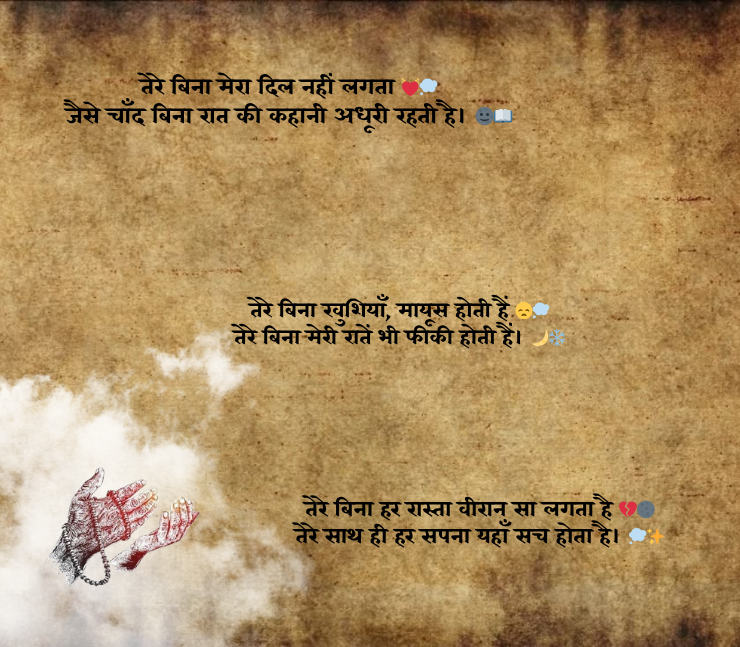 तेरे बिना मेरा दिल नहीं लगता 💓💭
जैसे चाँद बिना रात की कहानी अधूरी रहती है। 🌚📖
तेरे बिना खुशियाँ, मायूस होती हैं 😞💭
तेरे बिना मेरी रातें भी फीकी होती हैं। 🌙❄️
तेरे बिना हर रास्ता वीरान सा लगता है 💔🌚
तेरे साथ ही हर सपना यहाँ सच होता है। 💭✨